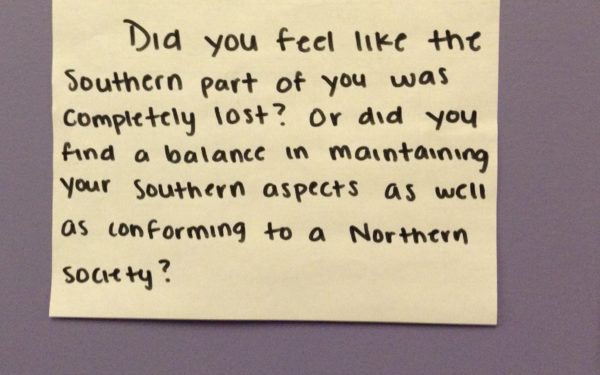 Did you feel like the
Southern part of you was
completely lost? Or did you
find a balance in maintaining
your Southern aspects as well
as conforming to a Northern
society?